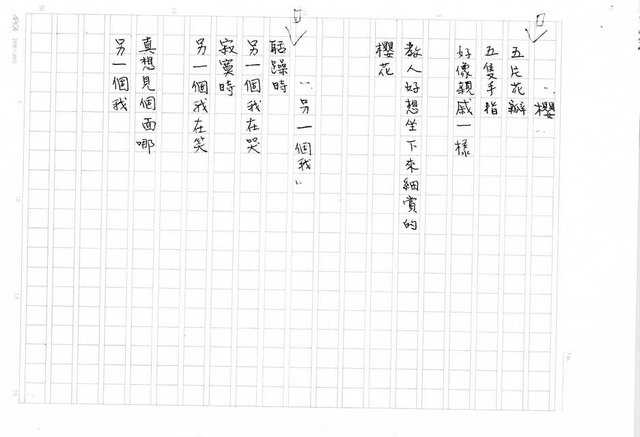 ‥櫻‥
五片花瓣
五隻手指
好像親戚一樣
教人好想坐下來細賞的
櫻花
‥另一個我‥
聒躁時
另一個我在哭
寂寞時
另一個我在笑
真想見個面哪
另一個我